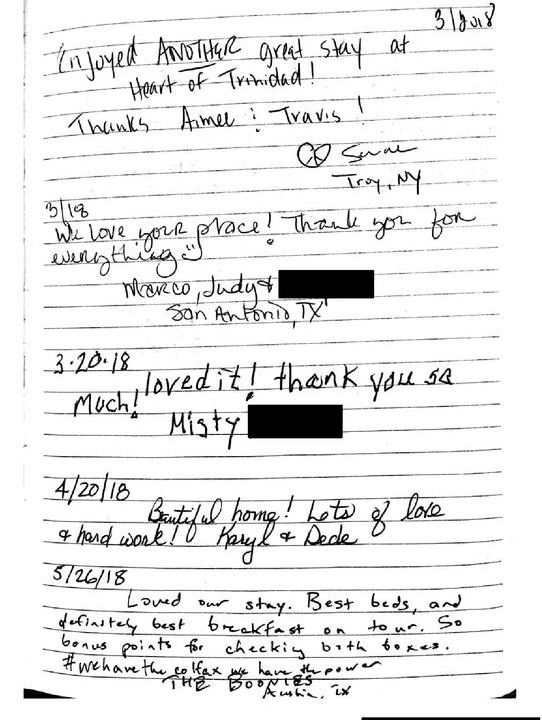 3/2018
Enjoyed ANOTHER great stay at
Heart of Trinidad!
Thanks Aimee & Travis!
Troy, NY
3/18
We love your place! Thank you for
everything :)
Marco, Judy &
San Antonio, TX
3.20.18
loved it! thank you so
Much!
Misty
4/20/18
Beautiful home! Lots of love
& hard work! Karyl & Dede
5/26/18
Loved our stay. Best beds, and
definitely best breakfast on tour. So
bonus points for checking both boxes.
#wehavethecolfax we have the power
THE BOONIES
Austin, TX